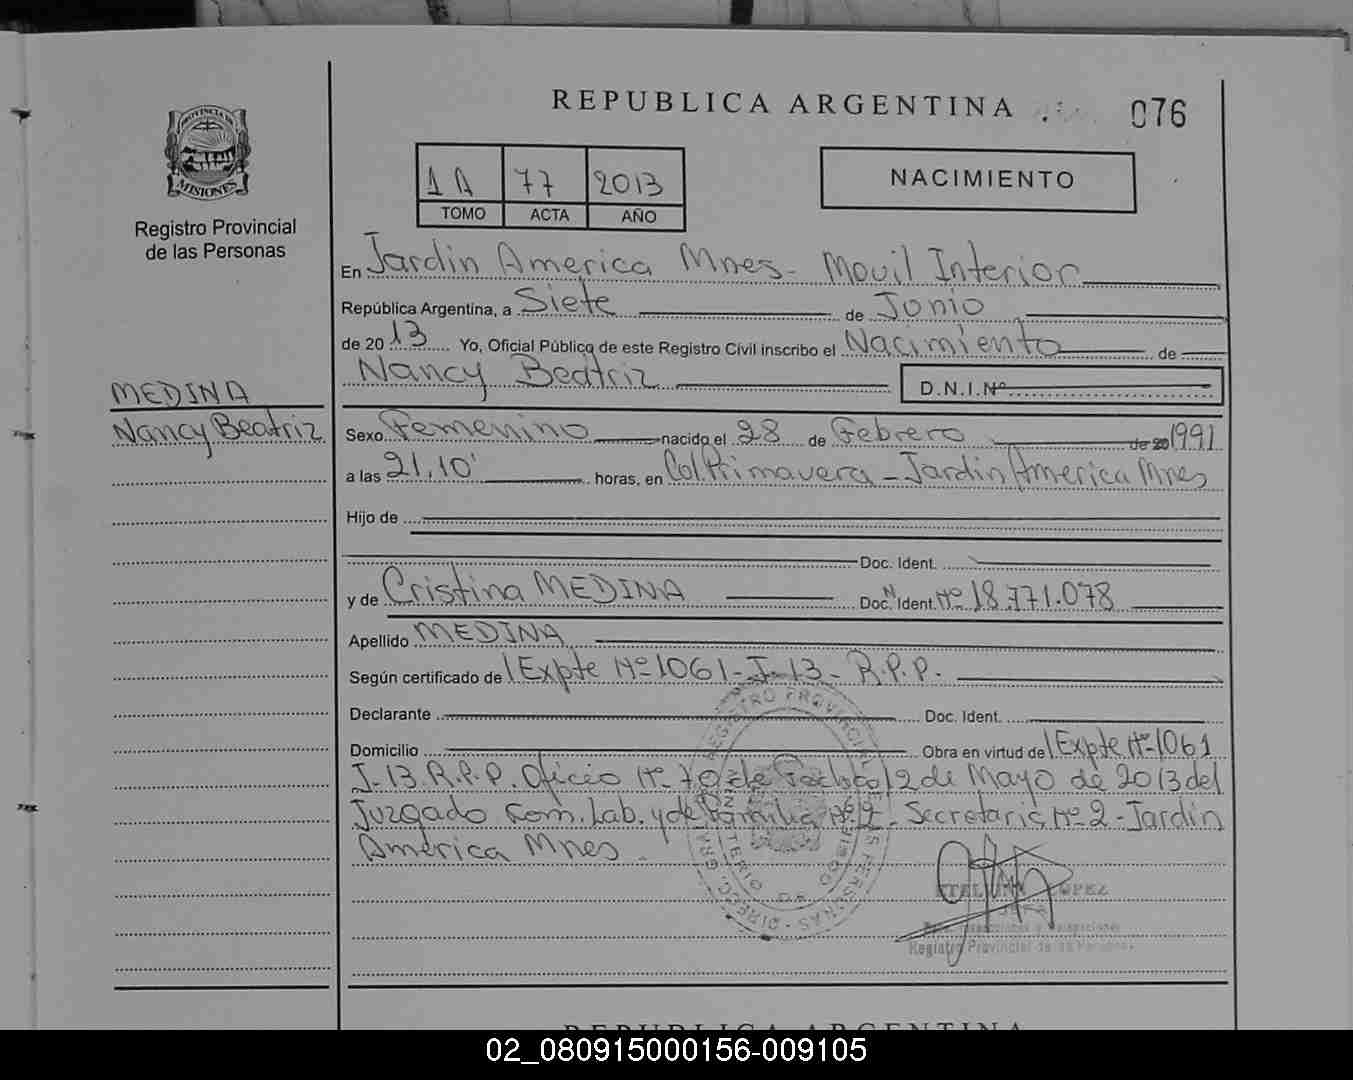 REPUBLICA ARGENTINA
076
PROVINCIA DE
MISIONES
Registro Provincial
de las Personas
1A 77 2013
TOMO ACTA AÑO
NACIMIENTO
En Jardin America Mnes - Movil Interior
República Argentina, a Siete de Junio
de 20 13 Yo, Oficial Público de este Registro Civil inscribo el Nacimiento de
Nancy Beatriz D.N.I.Nº
MEDINA
Nancy Beatriz
Sexo Femenino nacido el 28 de Febrero de 20 1991
a las 21,10' horas, en Col. Primavera - Jardin America Mnes
Hijo de
Doc. Ident.
y de Cristina MEDINA Doc. N Ident. Nº 18.771.078
Apellido MEDINA
Según certificado de Expte Nº 1061-J-13- R.P.P.
Declarante Doc. Ident.
Domicilio Obra en virtud de Expte Nº-1061
J-13 R.P.P. Oficio Nº 70 de 2 de Mayo de 2013 del
Juzgado Com. Lab. y de Familia Nº - Secretaria Nº 2 - Jardin
America Mnes.
REGISTRO PROVINCIAL DE LAS PERSONAS
LOPEZ
Registro Provincial de las Personas
REPUBLICA ARGENTINA
02_080915000156-009105